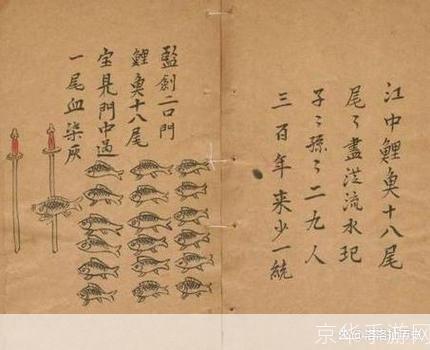 江中鯉魚十八尾
尾々盡從流水𣲙
子々孫々二九人
三百年来少一統
藍劍二口門
鯉魚十八尾
宝見門中過
一尾血染灰
京华手游网